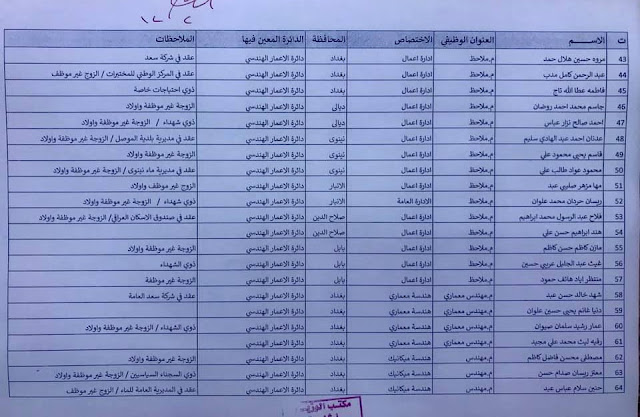 ت الاســـم العنوان الوظيفي الاختصاص المحافظة الدائرة المعين فيها الملاحظات
43 مروه حسين هلال حمد م.ملاحظ ادارة اعمال بغداد دائرة الاعمار الهندسي عقد في شركة سعد
44 عبد الرحمن كامل مدب م.ملاحظ ادارة اعمال بغداد دائرة الاعمار الهندسي عقد في المركز الوطني للمختبرات / الزوج غير موظف
45 فاطمه عطا الله تاج م.ملاحظ ادارة اعمال بغداد دائرة الاعمار الهندسي ذوي احتياجات خاصة
46 جاسم محمد احمد روضان م.ملاحظ ادارة اعمال ديالى دائرة الاعمار الهندسي الزوجة غير موظفة واولاد
47 احمد صالح نزار عباس م.ملاحظ ادارة اعمال ديالى دائرة الاعمار الهندسي ذوي شهداء / الزوجة غير موظفة واولاد
48 عدنان احمد عبد الهادي سليم م.ملاحظ ادارة اعمال نينوى دائرة الاعمار الهندسي عقد في مديرية بلدية الموصل / الزوجة غير موظفة واولاد
49 قاسم يحيى محمود علي م.ملاحظ ادارة اعمال نينوى دائرة الاعمار الهندسي الزوجة غير موظفة واولاد
50 محمود عواد طالب علي م.ملاحظ ادارة اعمال نينوى دائرة الاعمار الهندسي عقد في مديرية ماء نينوى / الزوجة غير موظفة واولاد
51 مها مزهر صليبي عبد م.ملاحظ ادارة اعمال الانبار دائرة الاعمار الهندسي الزوج غير موظف واولاد
52 ريسان حردان محمد علوان م.ملاحظ الادارة العامة الانبار دائرة الاعمار الهندسي ذوي شهداء / الزوجة غير موظفة واولاد
53 فلاح عبد الرسول محمد ابراهيم م.ملاحظ ادارة اعمال صلاح الدين دائرة الاعمار الهندسي عقد في صندوق الاسكان العراقي/ الزوجة غير موظفة واولاد
54 هند ابراهيم حسن علي م.ملاحظ ادارة اعمال صلاح الدين دائرة الاعمار الهندسي
55 مازن كاظم حسن كاظم م.ملاحظ ادارة اعمال بابل دائرة الاعمار الهندسي الزوجة غير موظفة واولاد
56 غيث عبد الجليل عربي حسين م.ملاحظ ادارة اعمال بابل دائرة الاعمار الهندسي ذوي الشهداء
57 منتظر اياد هاتف حمود م.ملاحظ ادارة اعمال بابل دائرة الاعمار الهندسي الزوجة غير موظفة
58 شهد خالد حسن عبد م.مهندس معماري هندسة معماري بغداد دائرة الاعمار الهندسي عقد في شركة سعد العامة
59 دنيا غانم يحيى حسين علوان م.مهندس معماري هندسة معماري بغداد دائرة الاعمار الهندسي
60 عمار رشيد سلمان صيوان م.مهندس معماري هندسة معماري بغداد دائرة الاعمار الهندسي ذوي الشهداء / الزوجة غير موظفة واولاد
61 رقيه ليث محمد علي مجيد م.مهندس معماري هندسة معماري بغداد دائرة الاعمار الهندسي
62 مصطفى محسن فاضل كاظم م.مهندس هندسة ميكانيك بغداد دائرة الاعمار الهندسي الزوجة غير موظفة واولاد
63 معتز ريسان صدام حسن م.مهندس هندسة ميكانيك بغداد دائرة الاعمار الهندسي ذوي السجناء السياسيين / الزوجة غير موظفة واولاد
64 حنين سلام عباس عبد م.مهندس هندسة ميكانيك بغداد دائرة الاعمار الهندسي عقد في المديرية العامة للماء / الزوج غير موظف
مكتب الوزير